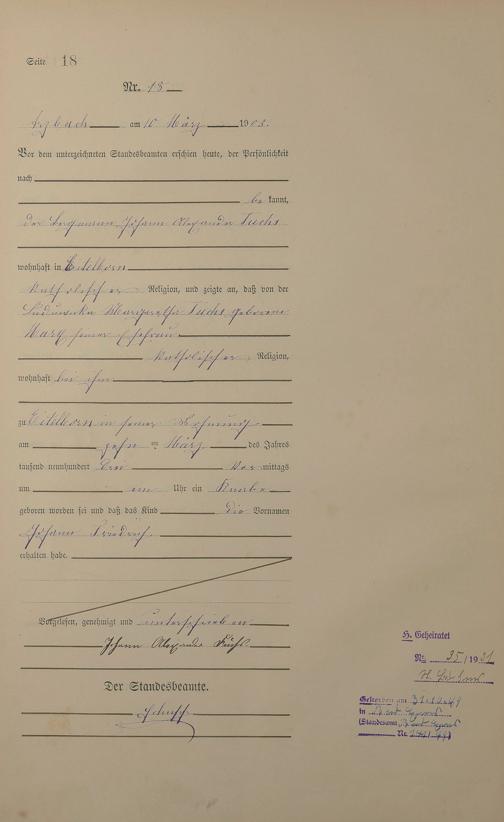 Seite 18
Nr. 18
Arzbach am 10 März 1903.
Vor dem unterzeichneten Standesbeamten erschien heute, der Persönlichkeit
nach
be kannt,
der Bergmann Johann Alexander Fuchs
wohnhaft in Eitelborn
katholischer Religion, und zeigte an, daß von der
Margaretha Fuchs geborene
Marx seiner Ehefrau
katholischer Religion,
wohnhaft bei ihm
zu Eitelborn in seiner Wohnung
am zehn ten März des Jahres
tausend neunhundert drei Vor mittags
um ein Uhr ein Knabe
geboren worden sei und daß das Kind die Vornamen
Johann Friedrich
erhalten habe.
Vorgelesen, genehmigt und unterschrieben
Johann Alexander Fuchs
Der Standesbeamte.
H. Geheiratet
Nr. 35/1931
Gestorben am
in
(Standesamt
Nr.